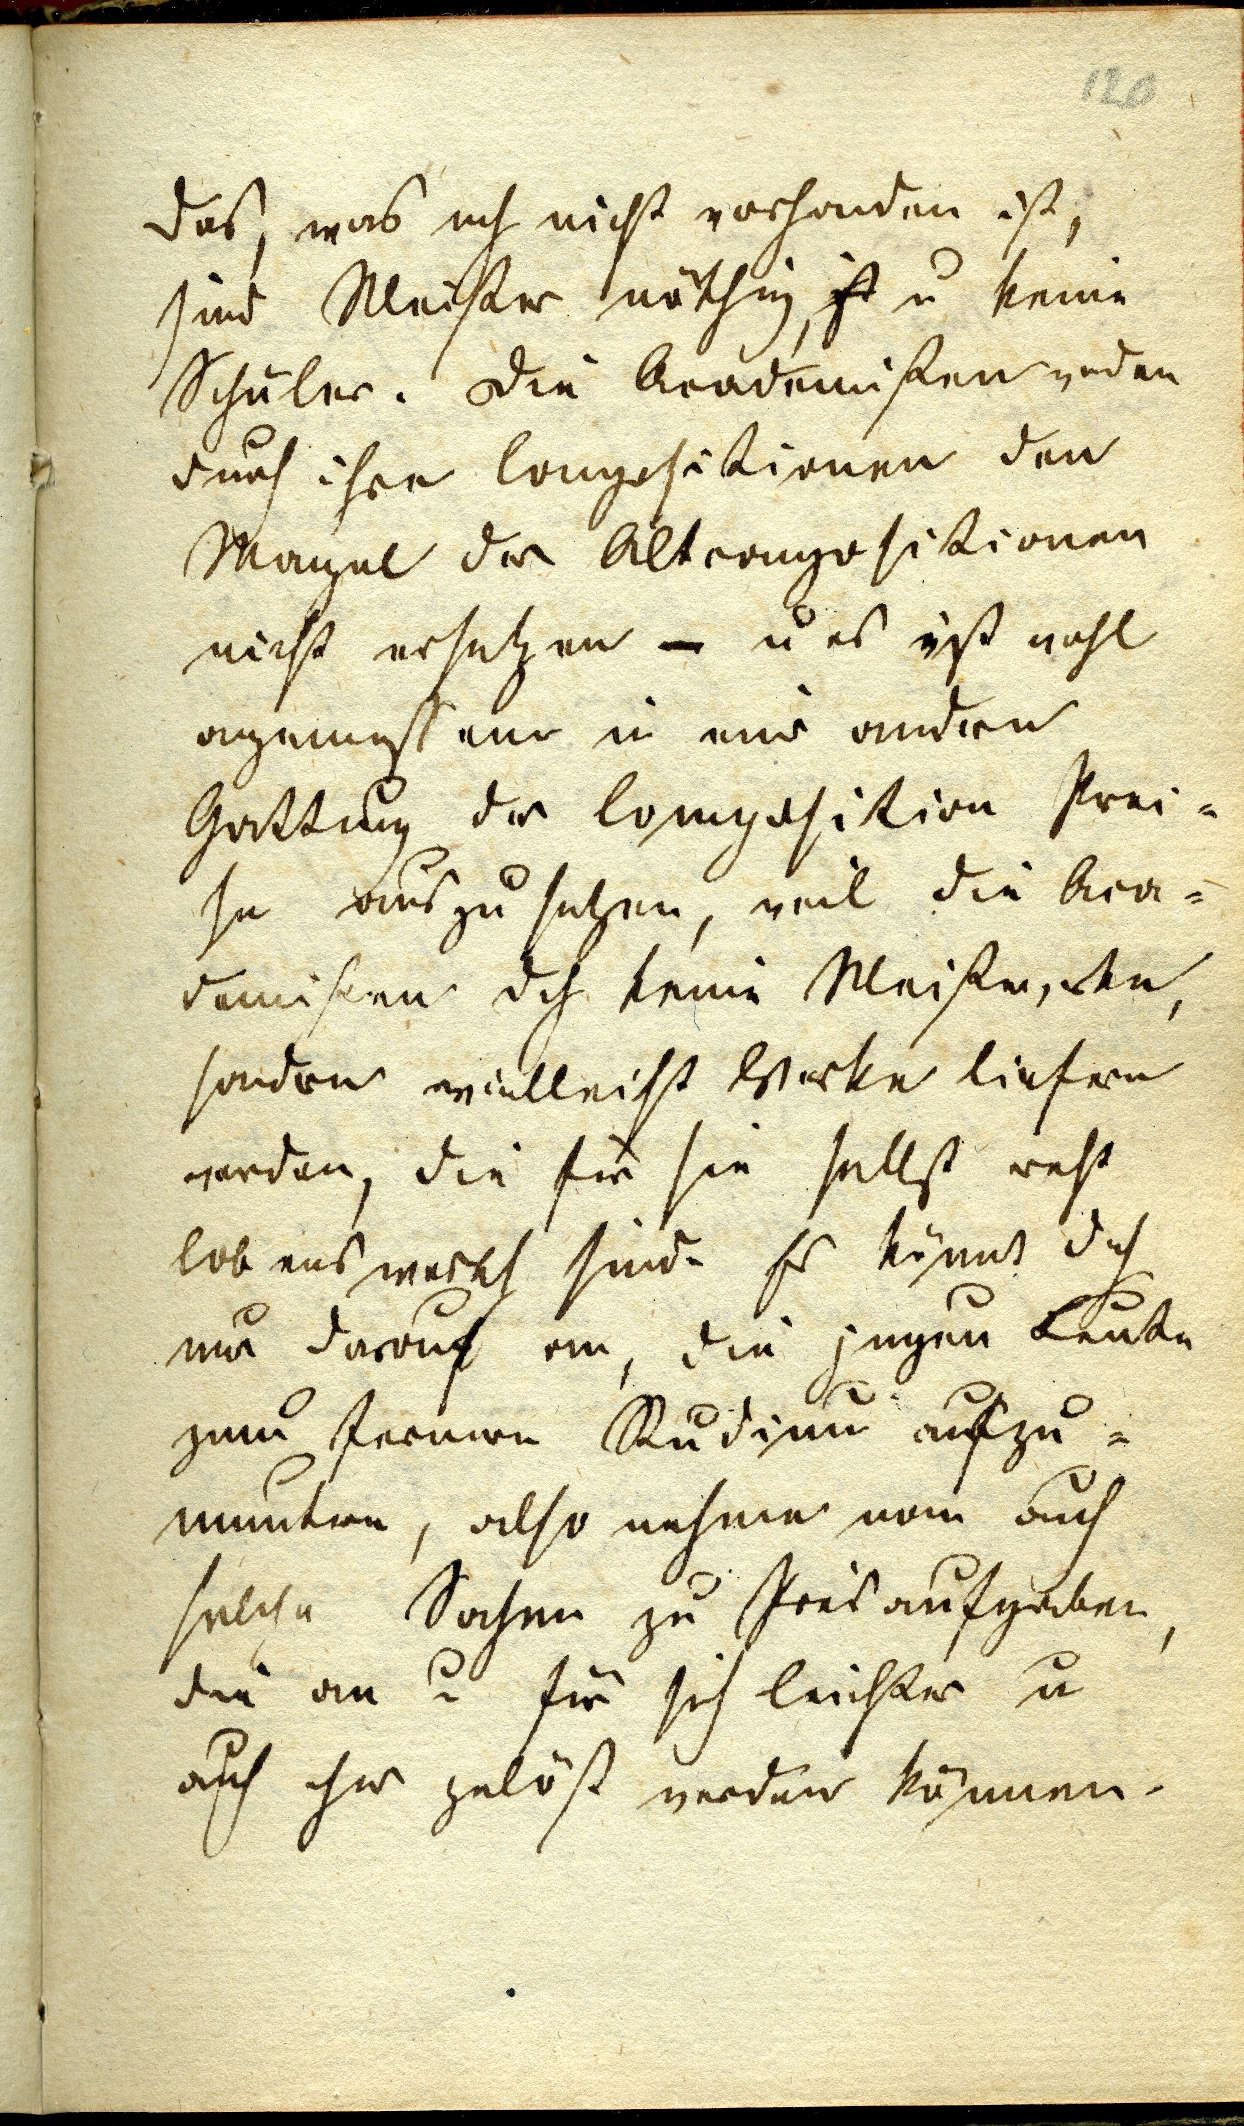 126
das, was nch nicht vorhanden ist,
sind Meister nöthig, ist u keine
Schüler. Die Academisten werden
durch ihre Compositionen den
Mangel der Altcompositionen
nicht ersetzen — u es ist wohl
angemessener in eine andere
Gattung der Composition Prei=
se auszusetzen, weil die Aca=
demisten dch keine Meisterwerke,
sondern vielleicht Werke liefern
werden, die für sie selbst recht
lobenswerth sind. Es kömmt dch
nur darauf an, die jungen Leute
zum fernern Studium aufzu=
muntern, also nehme man auch
solche Sachen zu Preisaufgaben,
die an u für sich leichter u
auch eher gelöst werden können.